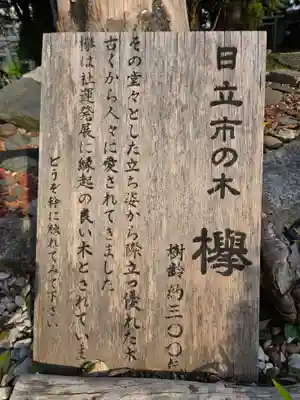 日立市の木
欅
樹齢約三〇〇年
その堂々とした立ち姿から際立つ優れた木
古くから人々に愛されてきました
欅は社運発展に縁起の良い木とされています
どうぞ幹に触れてみて下さい